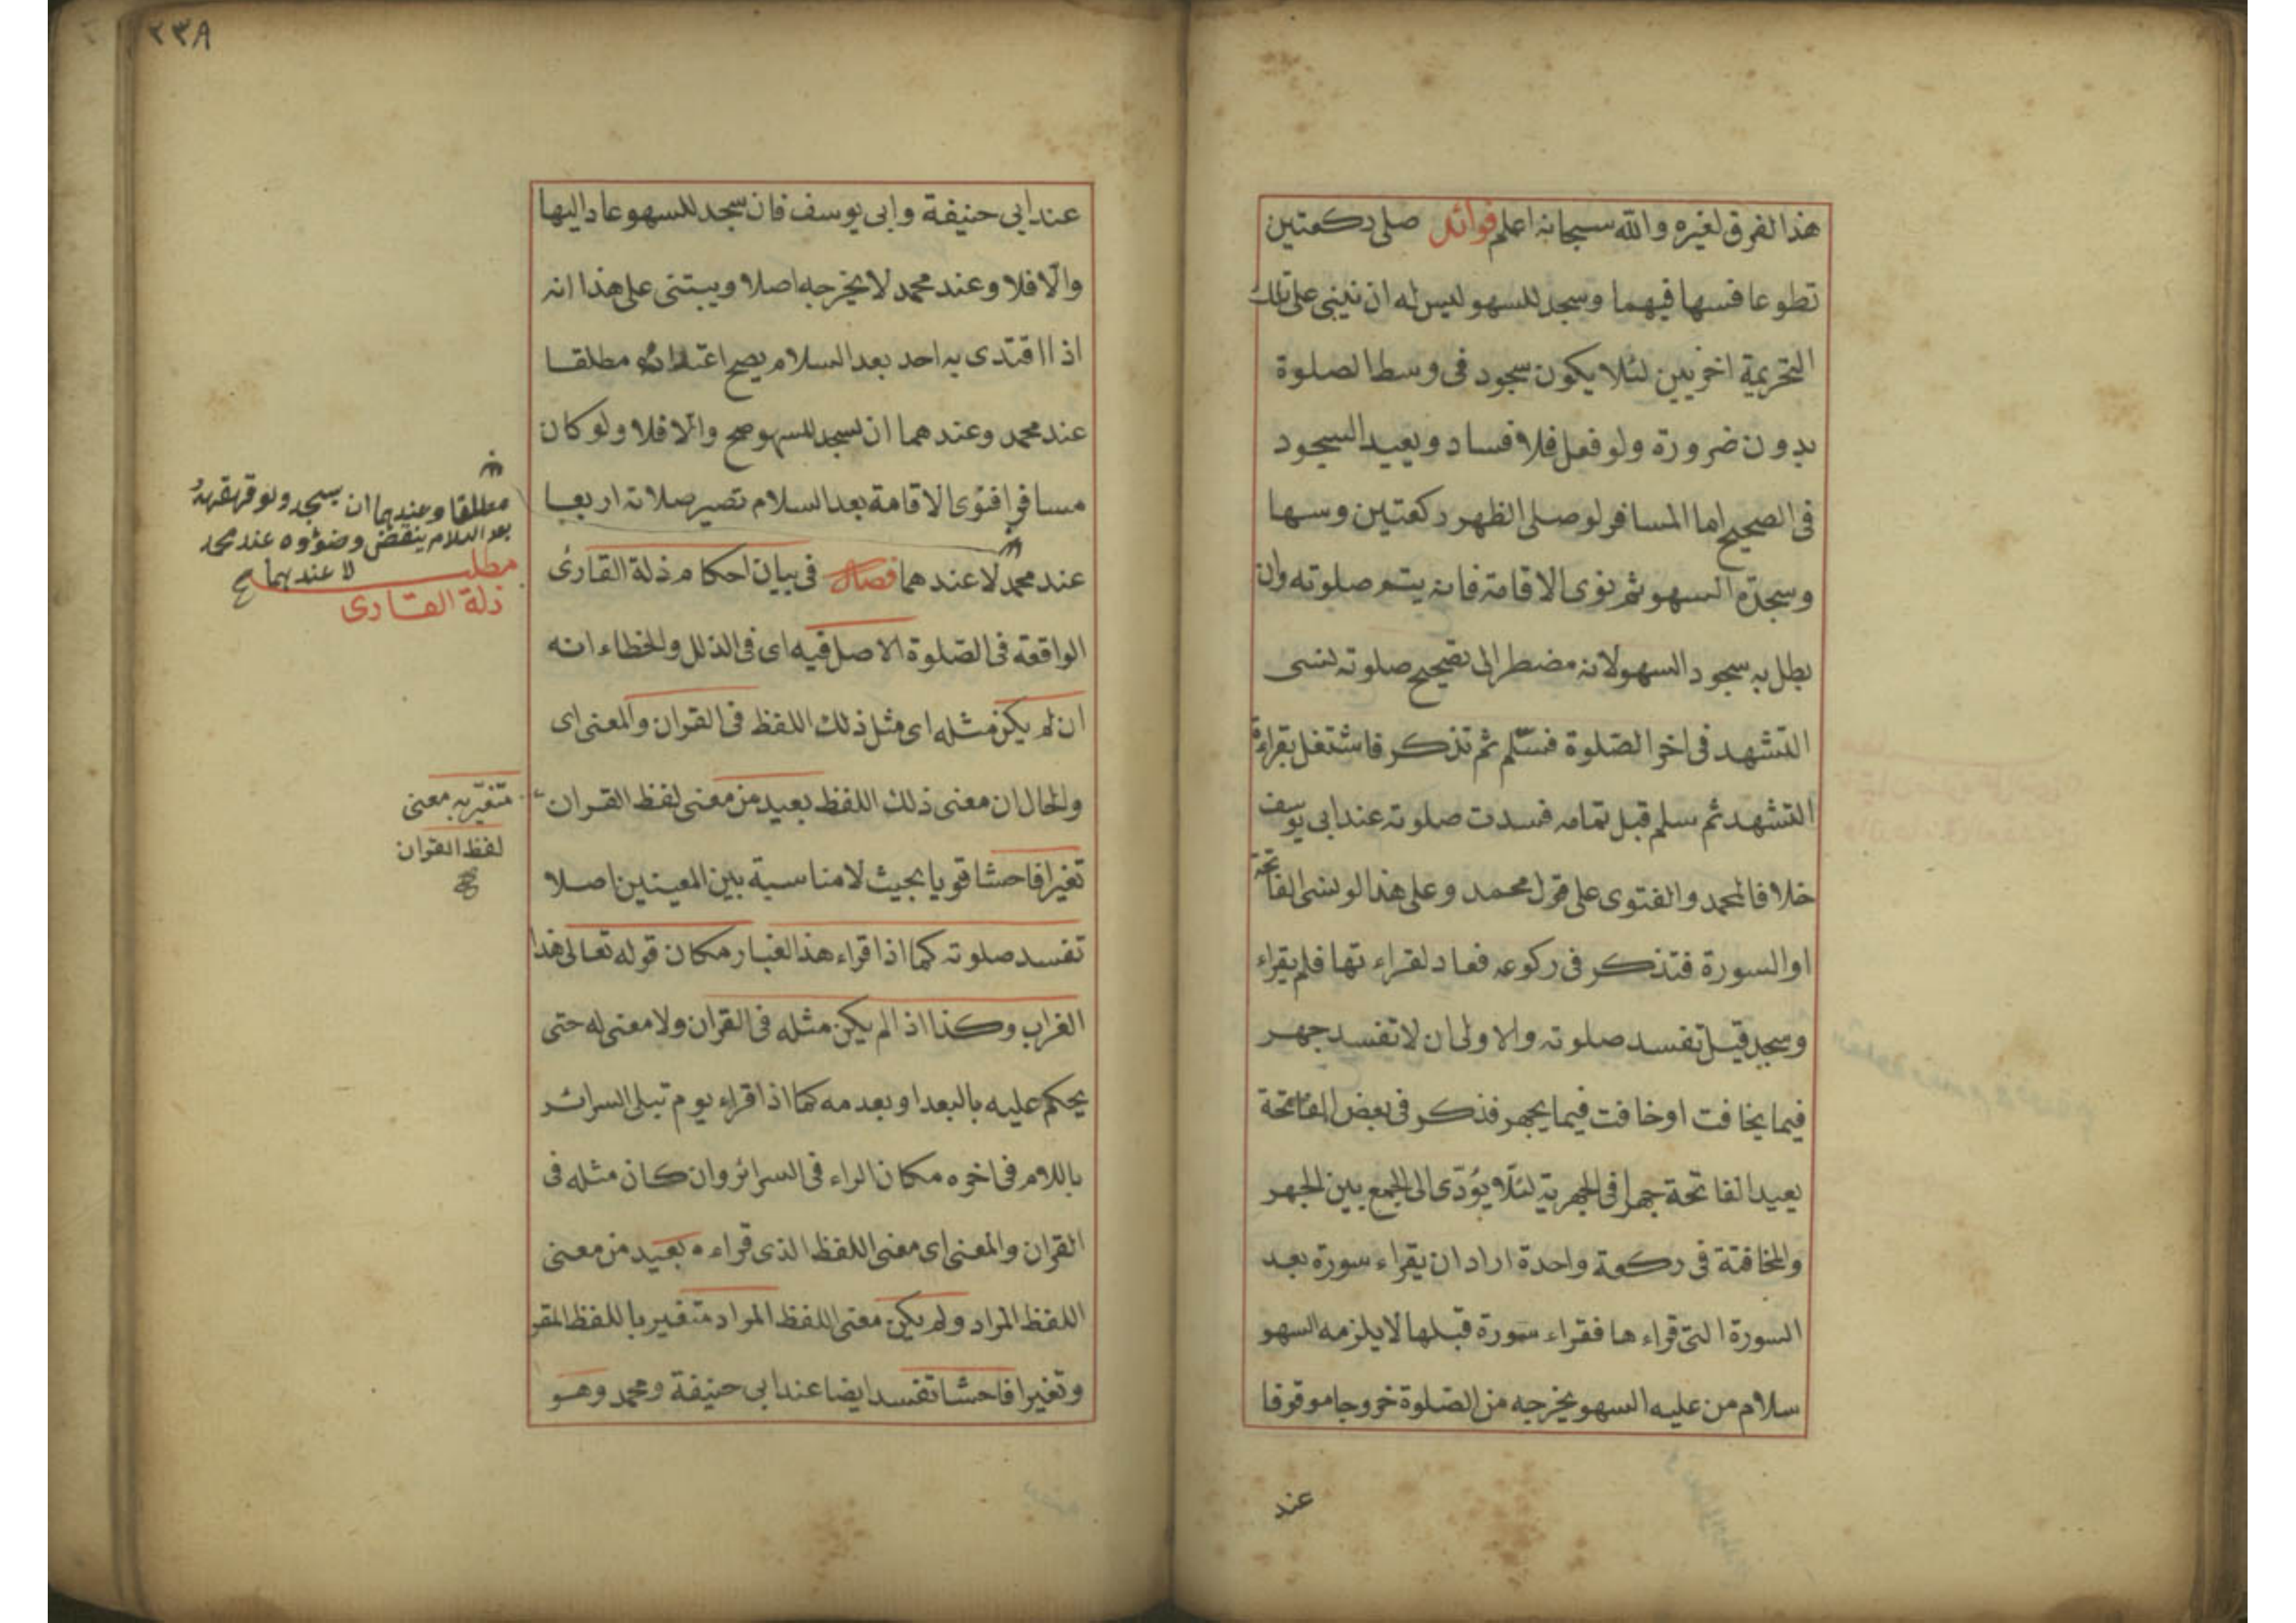 هذا الفرق لغيره والله سبحانه اعلم فوائد صلى ركعتين
تطوعا فسها فيهما وسجد للسهو ليس له ان يبنى على تلك
التحريمة اخريين لئلا يكون سجود فى وسط الصلوة
بدون ضرورة ولو فعل فلا فساد ويعيد السجود
فى الصحيح اما المسافر لو صلى الظهر ركعتين وسها
وسجدة السهو ثم نوى الاقامة فانه يتم صلوته وان
بطل به سجود السهو لانه مضطر الى تصحيح صلوته نسى
التشهد فى اخر الصلوة فسلم ثم تذكر فاشتغل بقراءة
التشهد ثم سلم قبل تمامه فسدت صلوته عند ابى يوسف
خلافا لمحمد والفتوى على قول محمد وعلى هذا لو نسى الفاتحة
او السورة فتذكر فى ركوعه فعاد لقراء تها فلم يقراء
وسجد قيل تفسد صلوته والاولى ان لا تفسد جهر
فيما يخافت او خافت فيما يجهر فذكر فى بعض الفاتحة
يعيد الفاتحة جهرا فى الجهرية لئلا يؤدى الى الجمع بين الجهر
والمخافتة فى ركعة واحدة اراد ان يقراء سورة بعد
السورة التى قراء ها فقراء سورة قبلها لا يلزمه السهو
سلام من عليه السهو يخرجه من الصلوة خروجا موقوفا
عند
٢٣٨
عند ابى حنيفة وابى يوسف فان سجد للسهو عاد اليها
والا فلا وعند محمد لا يخرجه اصلا ويبتنى على هذا انه
اذا اقتدى به احد بعد السلام يصح اقتداؤه مطلقا
عند محمد وعندهما ان سجد للسهو صح والا فلا ولو كان
مسافرا فنوى الاقامة بعد السلام تصير صلاته اربعا
عند محمد لا عندهما فصل فى بيان احكام ذلة القارئ
الواقعة فى الصلوة الاصل فيه اى فى الذلل والخطاء انه
ان لم يكن مثله اى مثل ذلك اللفظ فى القران والمعنى اى
والحال ان معنى ذلك اللفظ بعيد من معنى لفظ القران
تغيرا فاحشا قويا بحيث لا مناسبة بين المعينين اصلا
تفسد صلوته كما اذا قراء هذا الغبار مكان قوله تعالى هذا
الغراب وكذا اذا لم يكن مثله فى القران ولا معنى له حتى
يحكم عليه بالبعد او بعدمه كما اذا قراء يوم تبلى السرائر
باللام فى اخره مكان الراء فى السرائر وان كان مثله فى
القران والمعنى اى معنى اللفظ الذى قراء ه بعيد من معنى
اللفظ المراد ولم يكن معنى اللفظ المراد متغير باللفظ المقر
وتغيرا فاحشا تفسد ايضا عند ابى حنيفة ومحمد وهو
مطلقا وعندهما ان سجد ولو قهقهه
بعد السلام ينقض وضوؤه عند محمد
لا عندهما صح
مطلب
زلة القارى
متغير به معنى
لفظ القران